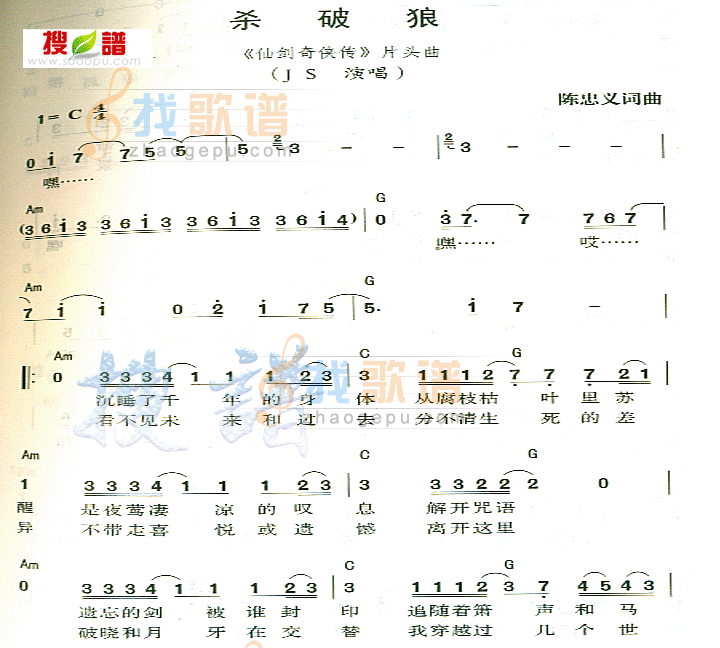 杀 破 狼
搜谱
www.sooopu.com
《仙剑奇侠传》片头曲
（JS 演唱）
陈忠义词曲
1=C 4/4
找歌谱
zhaogepu.com
0 i 7 7 5 5 5 2 3 – – 2 3 – – –
嘿……
Am G
(3 6 i 3 3 6 i 3 3 6 i 3 3 6 i 4) 0 3 7. 7 7 6 7
嘿…… 哎……
Am G
7 i i 0 2 i i 7 5 5. i 7 –
Am C G
0 3 3 3 4 1 1 1 2 3 3 1 1 1 2 7 7 7 2 1
沉睡了千 年的身 体 从腐枝枯 叶里苏
看不见未 来和过 去 分不清生 死的差
搜谱
找歌谱
zhaogepu.com
Am C G
1 3 3 3 4 1 1 1 2 3 3 3 3 2 2 2 0
醒 是夜莺凄 凉的叹 息 解开咒语
异 不带走喜 悦或遗 憾 离开这里
Am C G
0 3 3 3 4 1 1 1 2 3 3 1 1 1 2 3 7 4 5 4 3
遗忘的剑 被谁封 印 追随着箫 声和马
破晓和月 牙在交 替 我穿越过 几个世